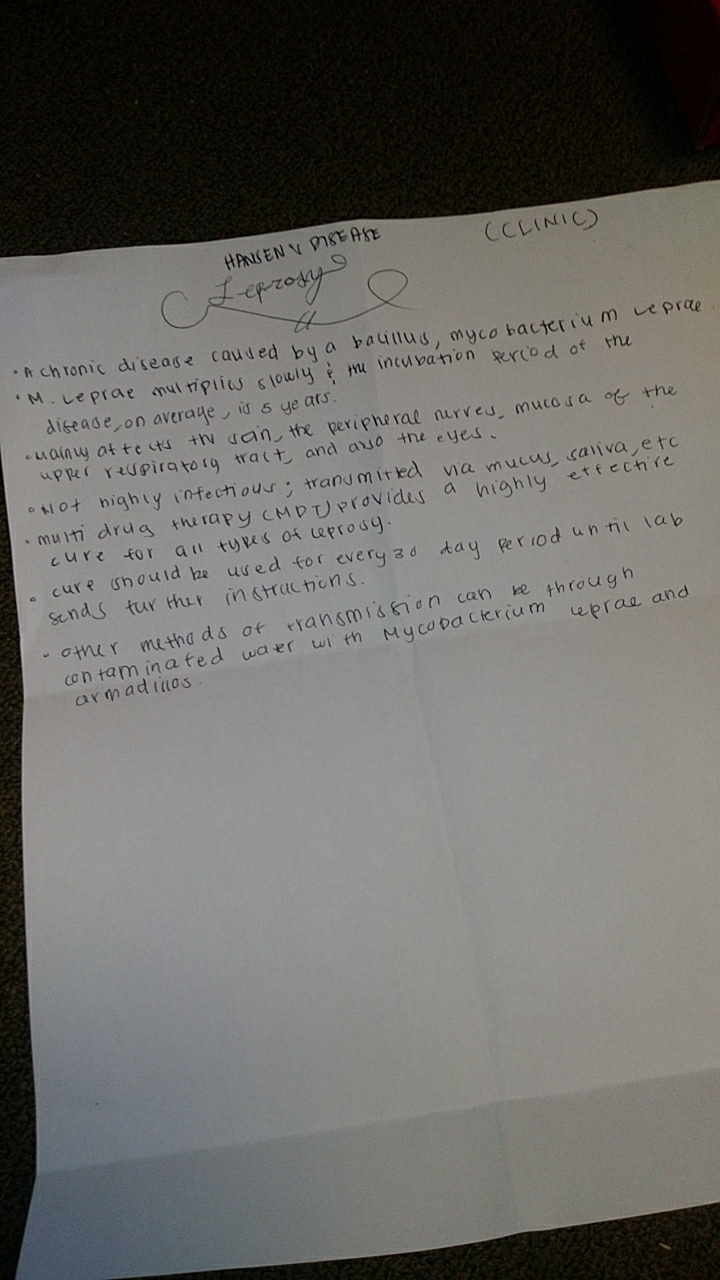 (CLINIC)
HANSEN'S DISEASE
Leprosy
• A chronic disease caused by a bacillus, mycobacterium leprae.
• M. Leprae multiplies slowly & the incubation period of the
disease, on average, is 5 years.
• mainly affects the skin, the peripheral nerves, mucosa of the
upper respiratory tract, and also the eyes.
• Not highly infectious; transmitted via mucus, saliva, etc
• multi drug therapy (MDT) provides a highly effective
cure for all types of leprosy.
• cure should be used for every 30 day period until lab
sends further instructions.
• other methods of transmission can be through
contaminated water with Mycobacterium leprae and
armadillos.